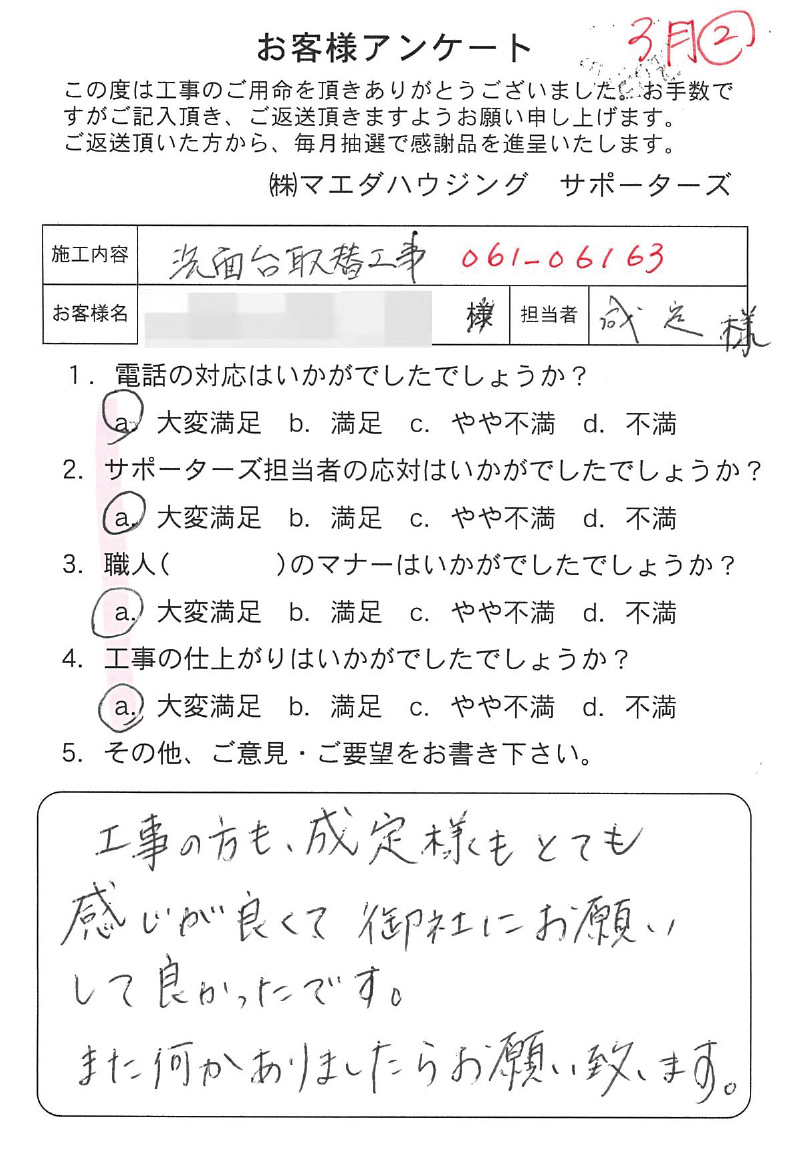 3月②
お客様アンケート
この度は工事のご用命を頂きありがとうございました。お手数で
すがご記入頂き、ご返送頂きますようお願い申し上げます。
ご返送頂いた方から、毎月抽選で感謝品を進呈いたします。
㈱マエダハウジング サポーターズ
施工内容 洗面台取替工事 061-06163
お客様名 様 担当者 成定様
1. 電話の対応はいかがでしたでしょうか？
a. 大変満足 b. 満足 c. やや不満 d. 不満
2. サポーターズ担当者の応対はいかがでしたでしょうか？
a. 大変満足 b. 満足 c. やや不満 d. 不満
3. 職人( )のマナーはいかがでしたでしょうか？
a. 大変満足 b. 満足 c. やや不満 d. 不満
4. 工事の仕上がりはいかがでしたでしょうか？
a. 大変満足 b. 満足 c. やや不満 d. 不満
5. その他、ご意見・ご要望をお書き下さい。
工事の方も、成定様もとても
感じが良くて御社にお願い
して良かったです。
また何かありましたらお願い致します。